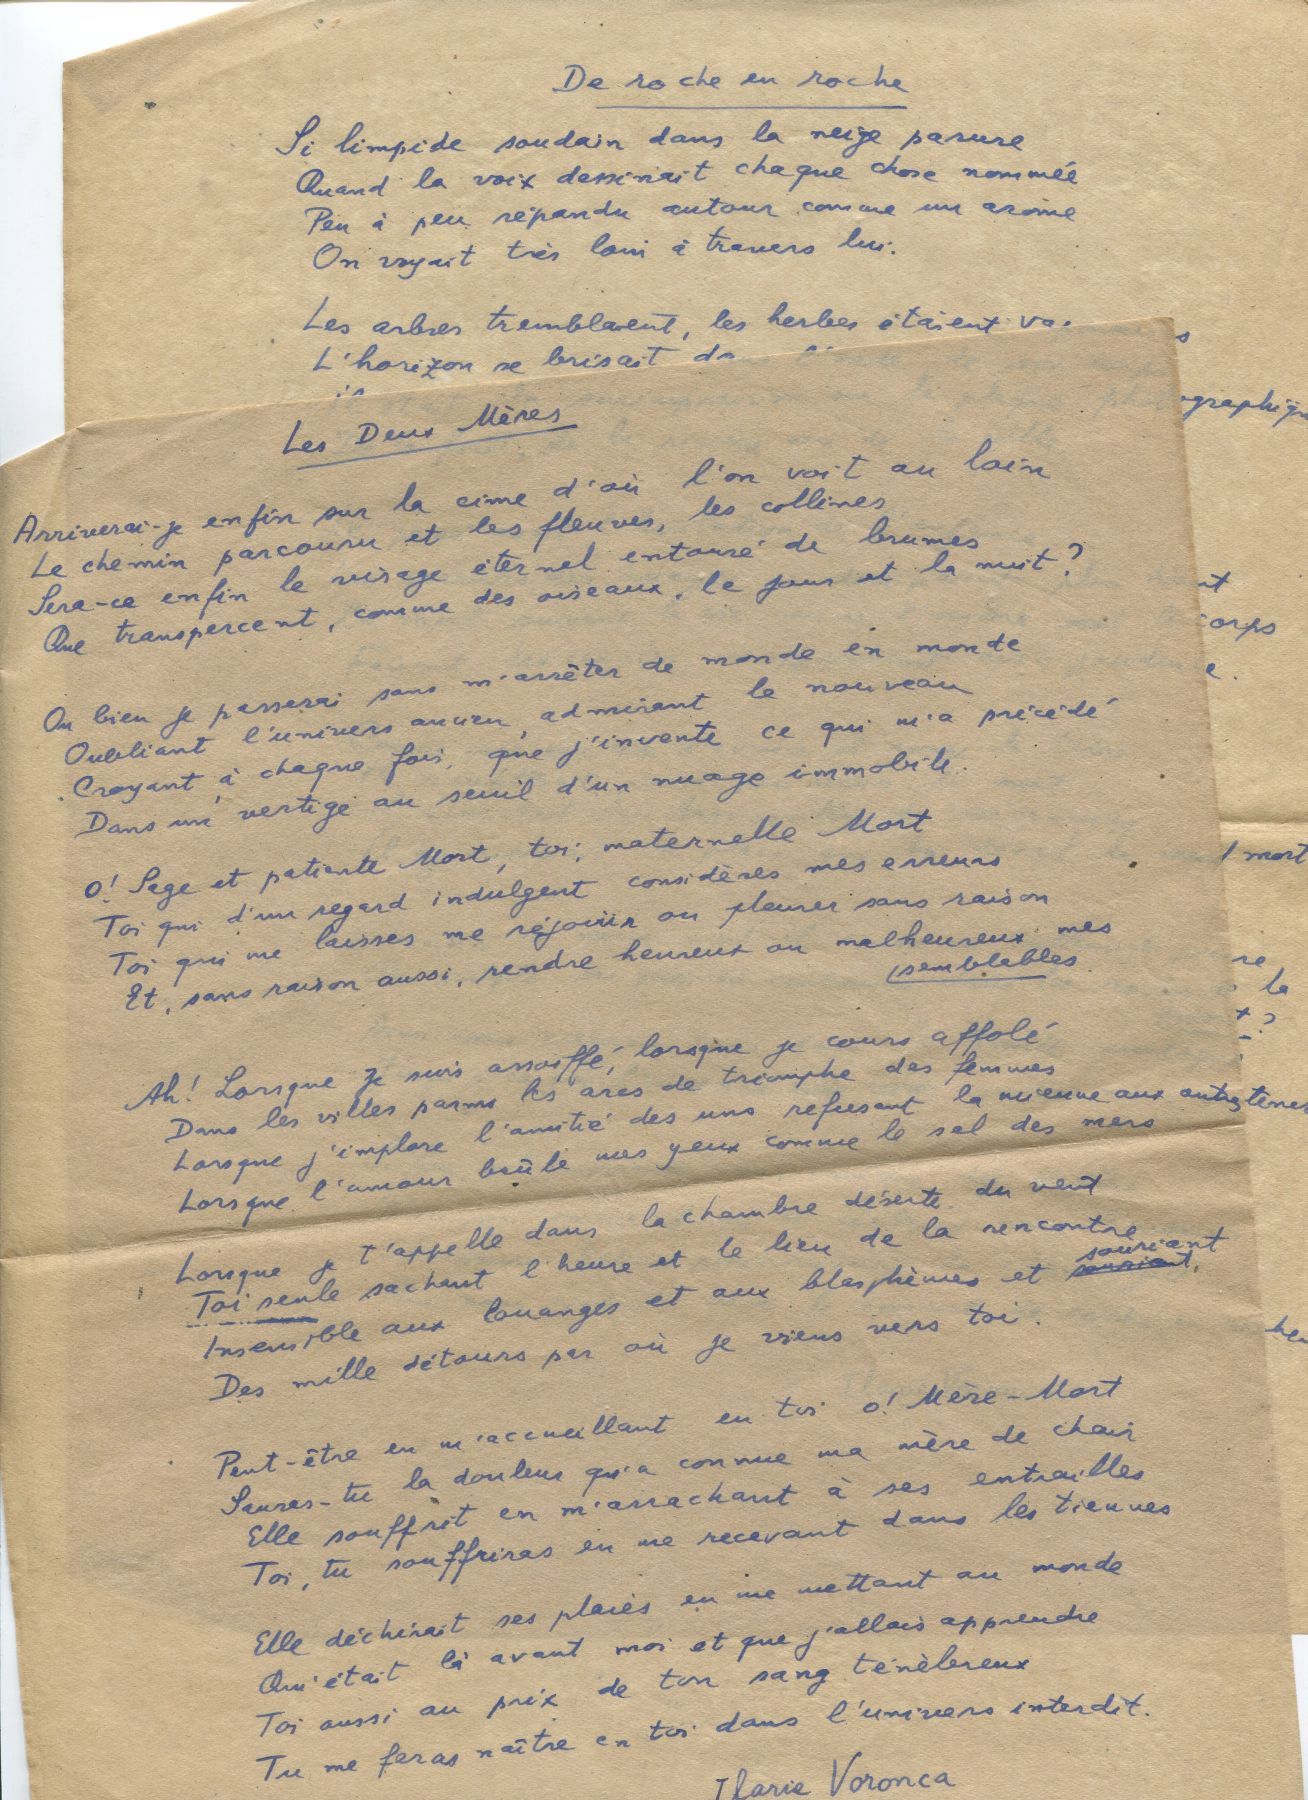 De roche en roche
Si limpide soudain dans la neige parure
Quand la voix dessinait chaque chose nommée
Peu à peu répandu autour comme un arôme
On voyait très loin à travers lui.
Les arbres tremblaient, les herbes étaient
L'horizon se brisait
ographiqu
nt
corps
e.
mort
re
la
?
heu
Les Deux Mères
Arriverai-je enfin sur la cime d'où l'on voit au loin
Le chemin parcouru et les fleuves, les collines
Sera-ce enfin le visage éternel entouré de brumes
Que transpercent, comme des oiseaux, le jour et la nuit?
Ou bien je passerai sans m'arrêter de monde en monde
Oubliant l'univers ancien, admirant le nouveau
Croyant à chaque fois, que j'invente ce qui m'a précédé
Dans un vertige au seuil d'un nuage immobile.
O! Sage et patiente Mort, toi, maternelle Mort
Toi qui d'un regard indulgent considères mes erreurs
Toi qui me laisses me réjouir ou pleurer sans raison
Et, sans raison aussi, rendre heureux ou malheureux mes
semblables.
Ah! Lorsque je suis assoiffé, lorsque je cours affolé
Dans les villes parmi les arcs de triomphe des femmes
Lorsque j'implore l'amitié des uns refusant la mienne aux autres
Lorsque l'amour brûle mes yeux comme le sel des mers
Lorsque je t'appelle dans la chambre déserte du vent
Toi seule sachant l'heure et le lieu de la rencontre
Insensible aux louanges et aux blasphèmes et souriant
Des mille détours par où je viens vers toi.
Peut-être en m'accueillant en toi O! Mère-Mort
Sauras-tu la douleur qu'a connue ma mère de chair
Elle souffrit en m'arrachant à ses entrailles
Toi, tu souffriras en me recevant dans les tiennes
Elle déchirait ses plaies en me mettant au monde
Qui était là avant moi et que j'allais apprendre
Toi aussi au prix de ton sang ténèbreux
Tu me feras naître en toi dans l'univers interdit.
Ilarie Voronca